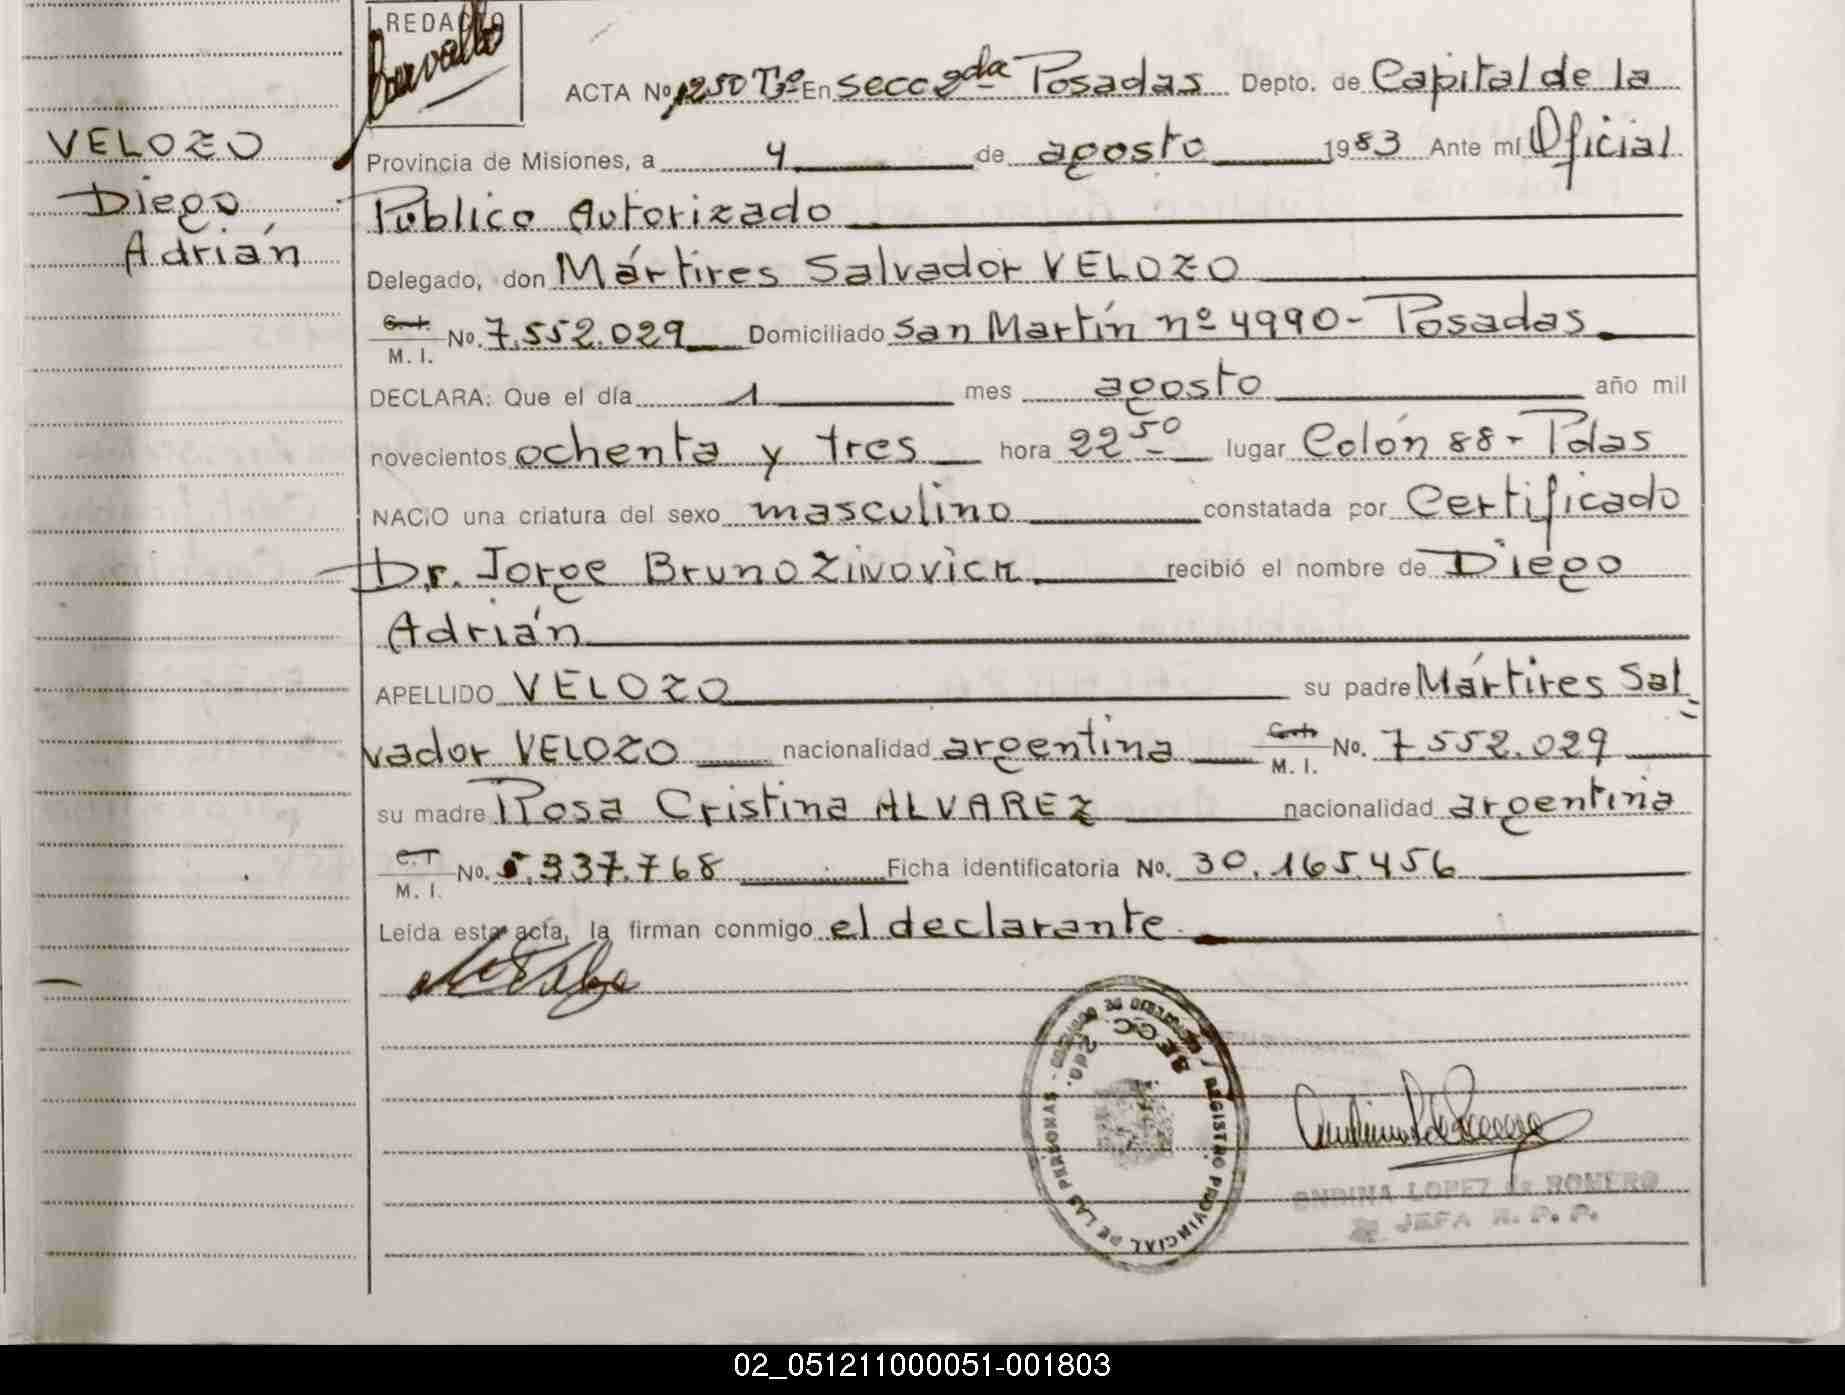 REDACTO
ACTA No 1250 Tº En secc 2da Posadas Depto. de Capital de la
VELOZO
Diego
Adrián
Provincia de Misiones, a 4 de agosto 1983 Ante mi Oficial
Público Autorizado
Delegado, don Mártires Salvador VELOZO
M. I. No. 7.552.029 Domiciliado San Martín nº 4990 - Posadas
DECLARA: Que el día 1 mes agosto año mil
novecientos ochenta y tres hora 22 50 lugar Colón 88 - Pdas
NACIO una criatura del sexo masculino constatada por Certificado
Dr. Jorge Bruno Zinovich recibió el nombre de Diego
Adrián
APELLIDO VELOZO su padre Mártires Sal-
vador VELOZO nacionalidad argentina M. I. No. 7.552.029
su madre Rosa Cristina ALVAREZ nacionalidad argentina
C.I. M. I. No. 5.337.768 Ficha identificatoria No. 30.165.456
Leída esta acta, la firman conmigo el declarante
REGISTRO PROVINCIAL DE LAS PERSONAS
SECC. 2da.
ONDINA LOPEZ de ROMERO
JEFA R. P. P.
02_051211000051-001803